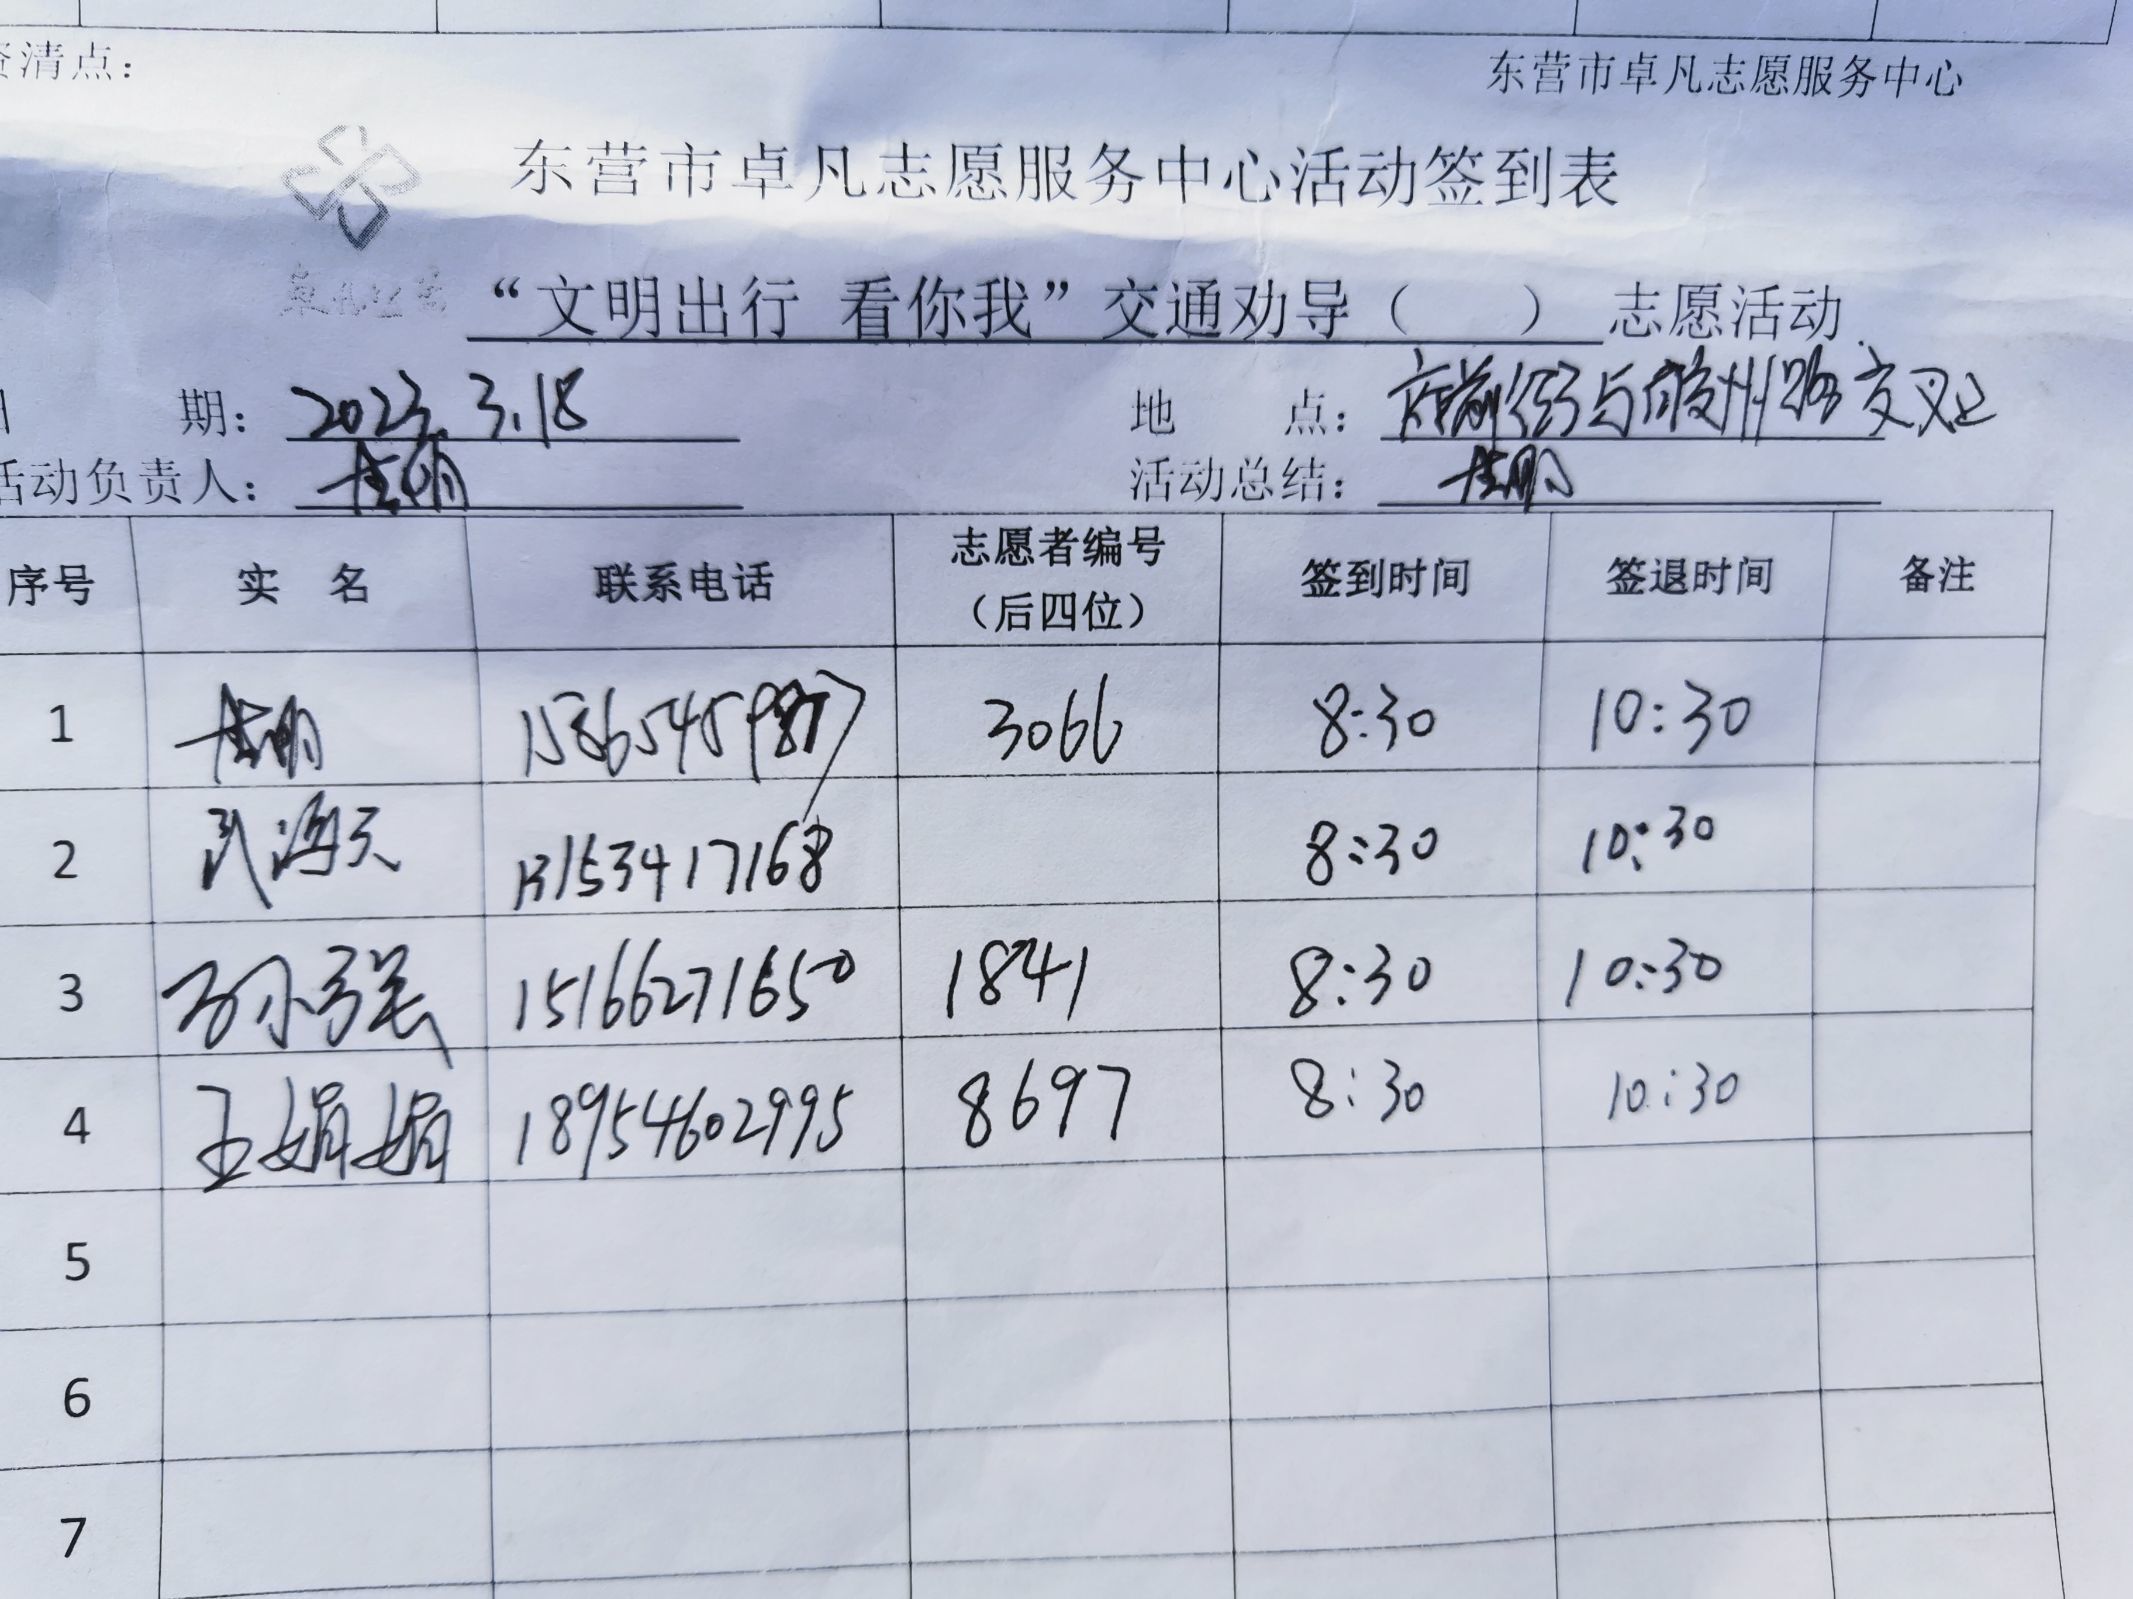 资清点：
东营市卓凡志愿服务中心
东营市卓凡志愿服务中心活动签到表
“文明出行 看你我”交通劝导（ ） 志愿活动
期： 2023.3.18 地 点： 府前街与胶州路交叉
活动负责人： 活动总结：
序号 实 名 联系电话 志愿者编号（后四位） 签到时间 签退时间 备注
1 3066 8:30 10:30
2 8:30 10:30
3 孙小强 15166271650 1841 8:30 10:30
4 王娟娟 18954602995 8697 8:30 10:30
5
6
7